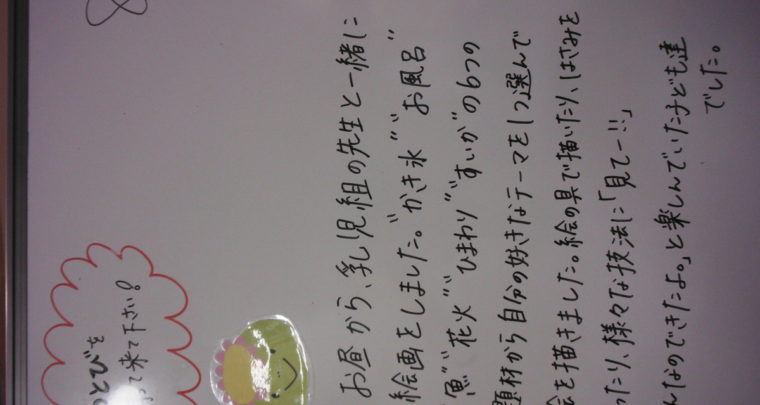 とびを
って来て下さい!
お昼から、乳児組の先生と一緒に
絵画をしました。"かき氷""お風呂"
魚""花火""ひまわり""すいか"の6つの
題材から自分の好きなテーマを1つ選んで
絵を描きました。絵の具で描いたり、はさみを
ったり、様々な技法に「見てー!!」
んなのできたよ。」と楽しんでいた子ども達
でした。